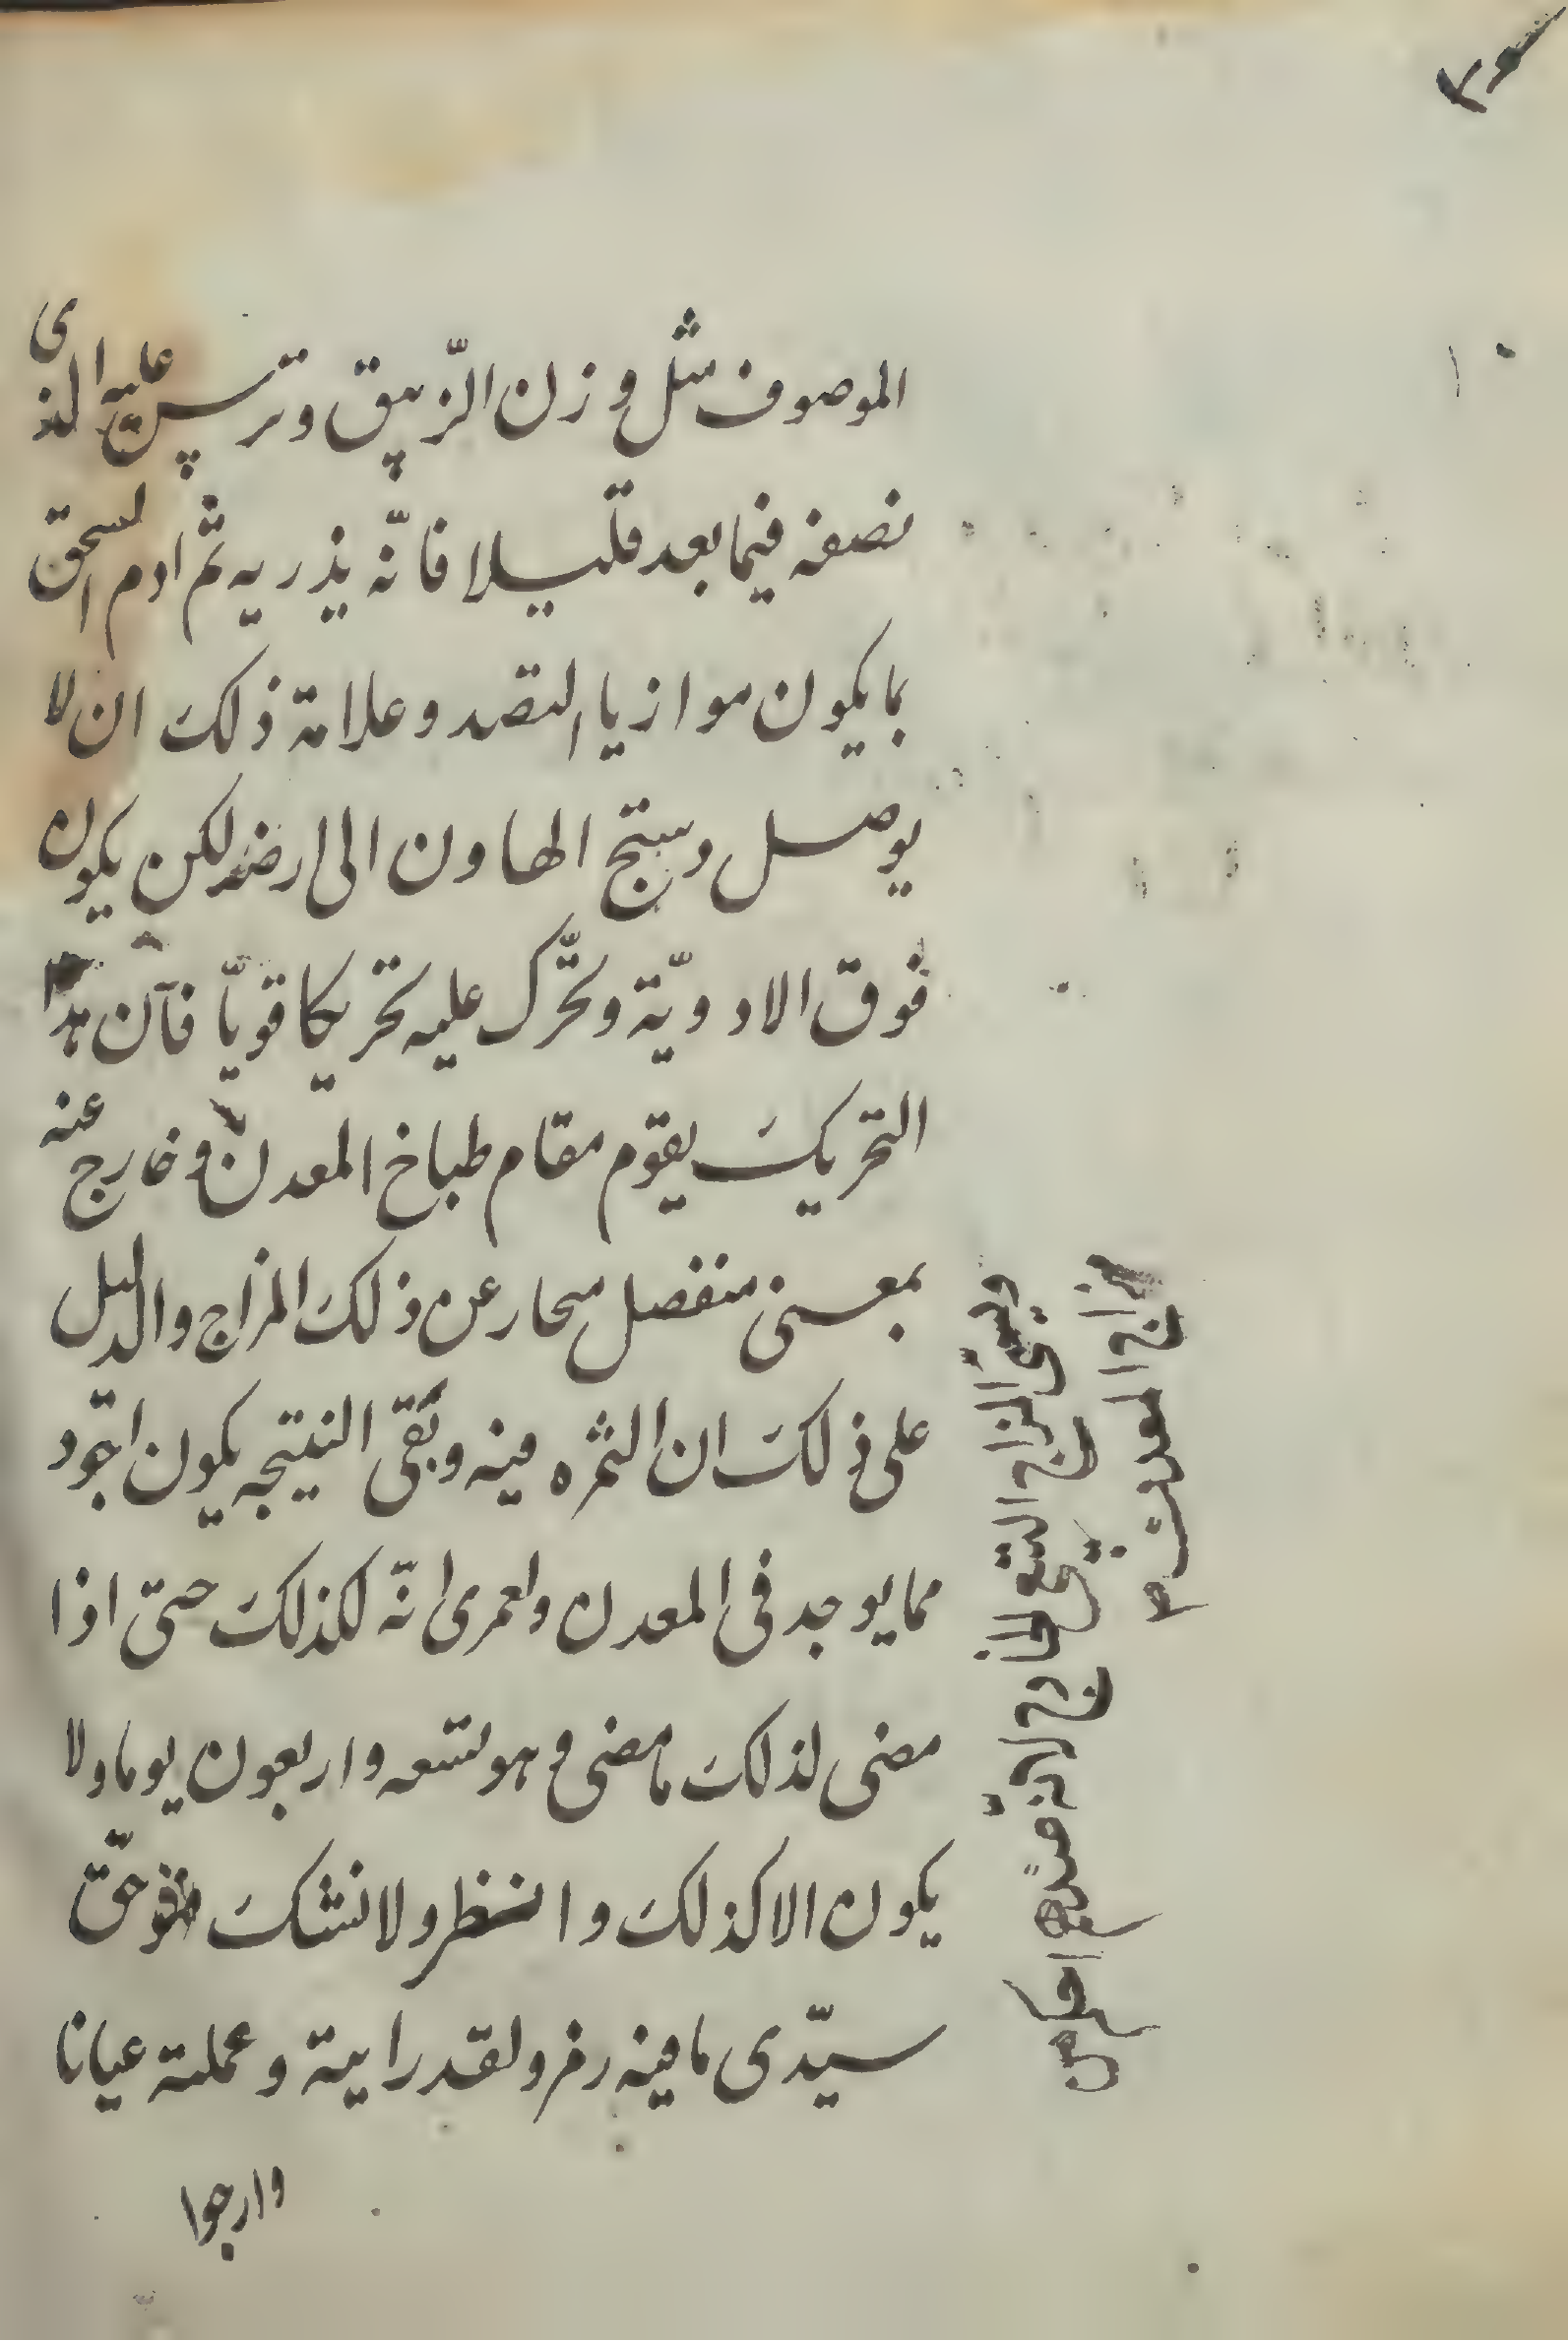 الموصوف مثل وزن الزّيبق وترس عليه الذى
نصفه فيما بعد قليلا فانّه يذريه ثم ادم السحق
بما يكون موازيا القصد وعلامة ذلك ان لا
يوصل دستج الهاون الى ارضه لكن يكون
فوق الادويّة وتحّرك عليه تحريكا قويّا فآن هذا
التحريك يقوم مقام طباخ المعدن وخارج عنه
بمعنى منفصل بحار عن ذلك المزاج والدليل
على ذلك ان الثمره فيه وبقى النتيجه يكون اجود
مما يوجد فى المعدن ولعمرى انّه لكذلك حتى اذا
مضى لذلك ما مضى وهو تسعه واربعون يوما ولا
يكون الا كذلك وانظر ولا نشك فهو حقّ
سيّدى ما فيه رمز ولقد رايته وعملته عيانا
وارجوا
ويسمّى المزاج
مزاج المعدن